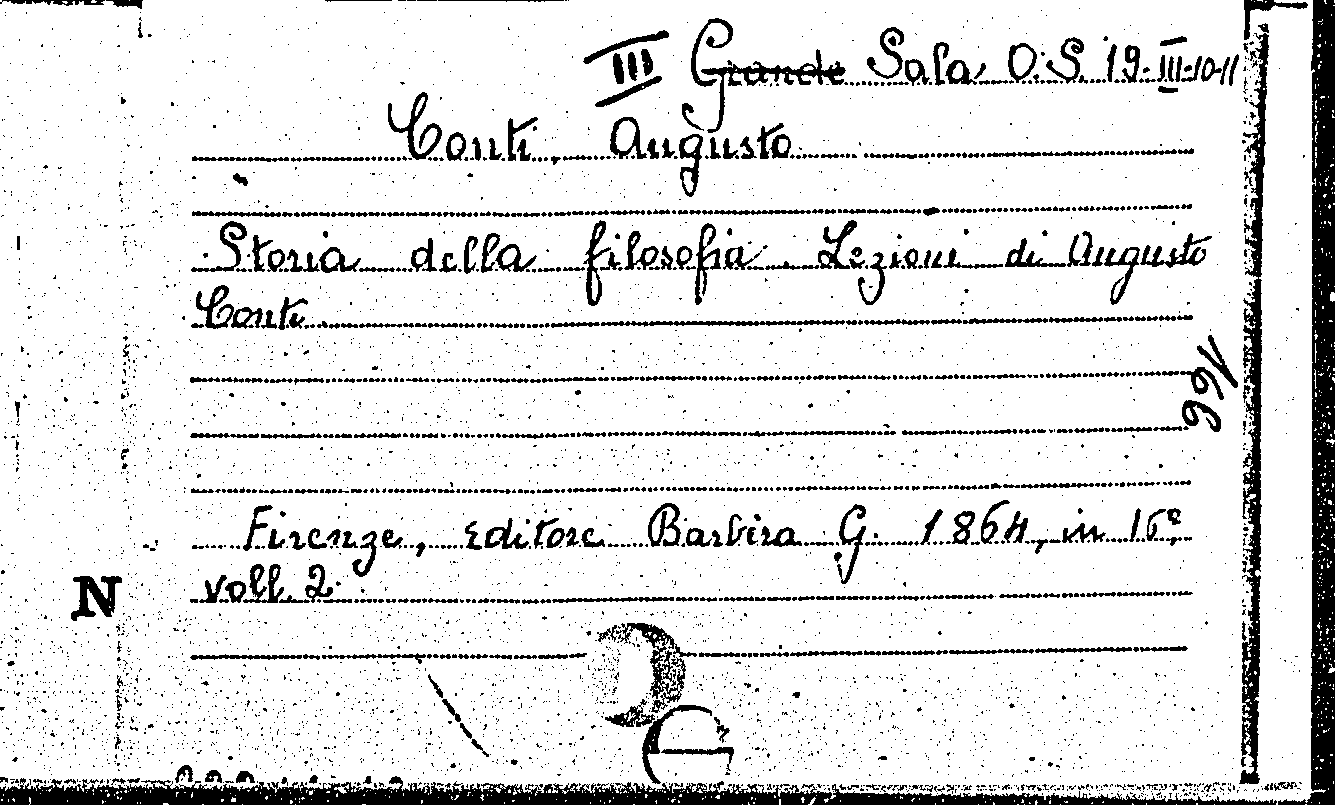 III Grande Sala O.S. 19-III-10-11
Conti, Augusto
Storia della filosofia. Lezioni di Augusto
Conti.
166
Firenze, editore Barbèra G. 1864, in 16°,
voll. 2.
N